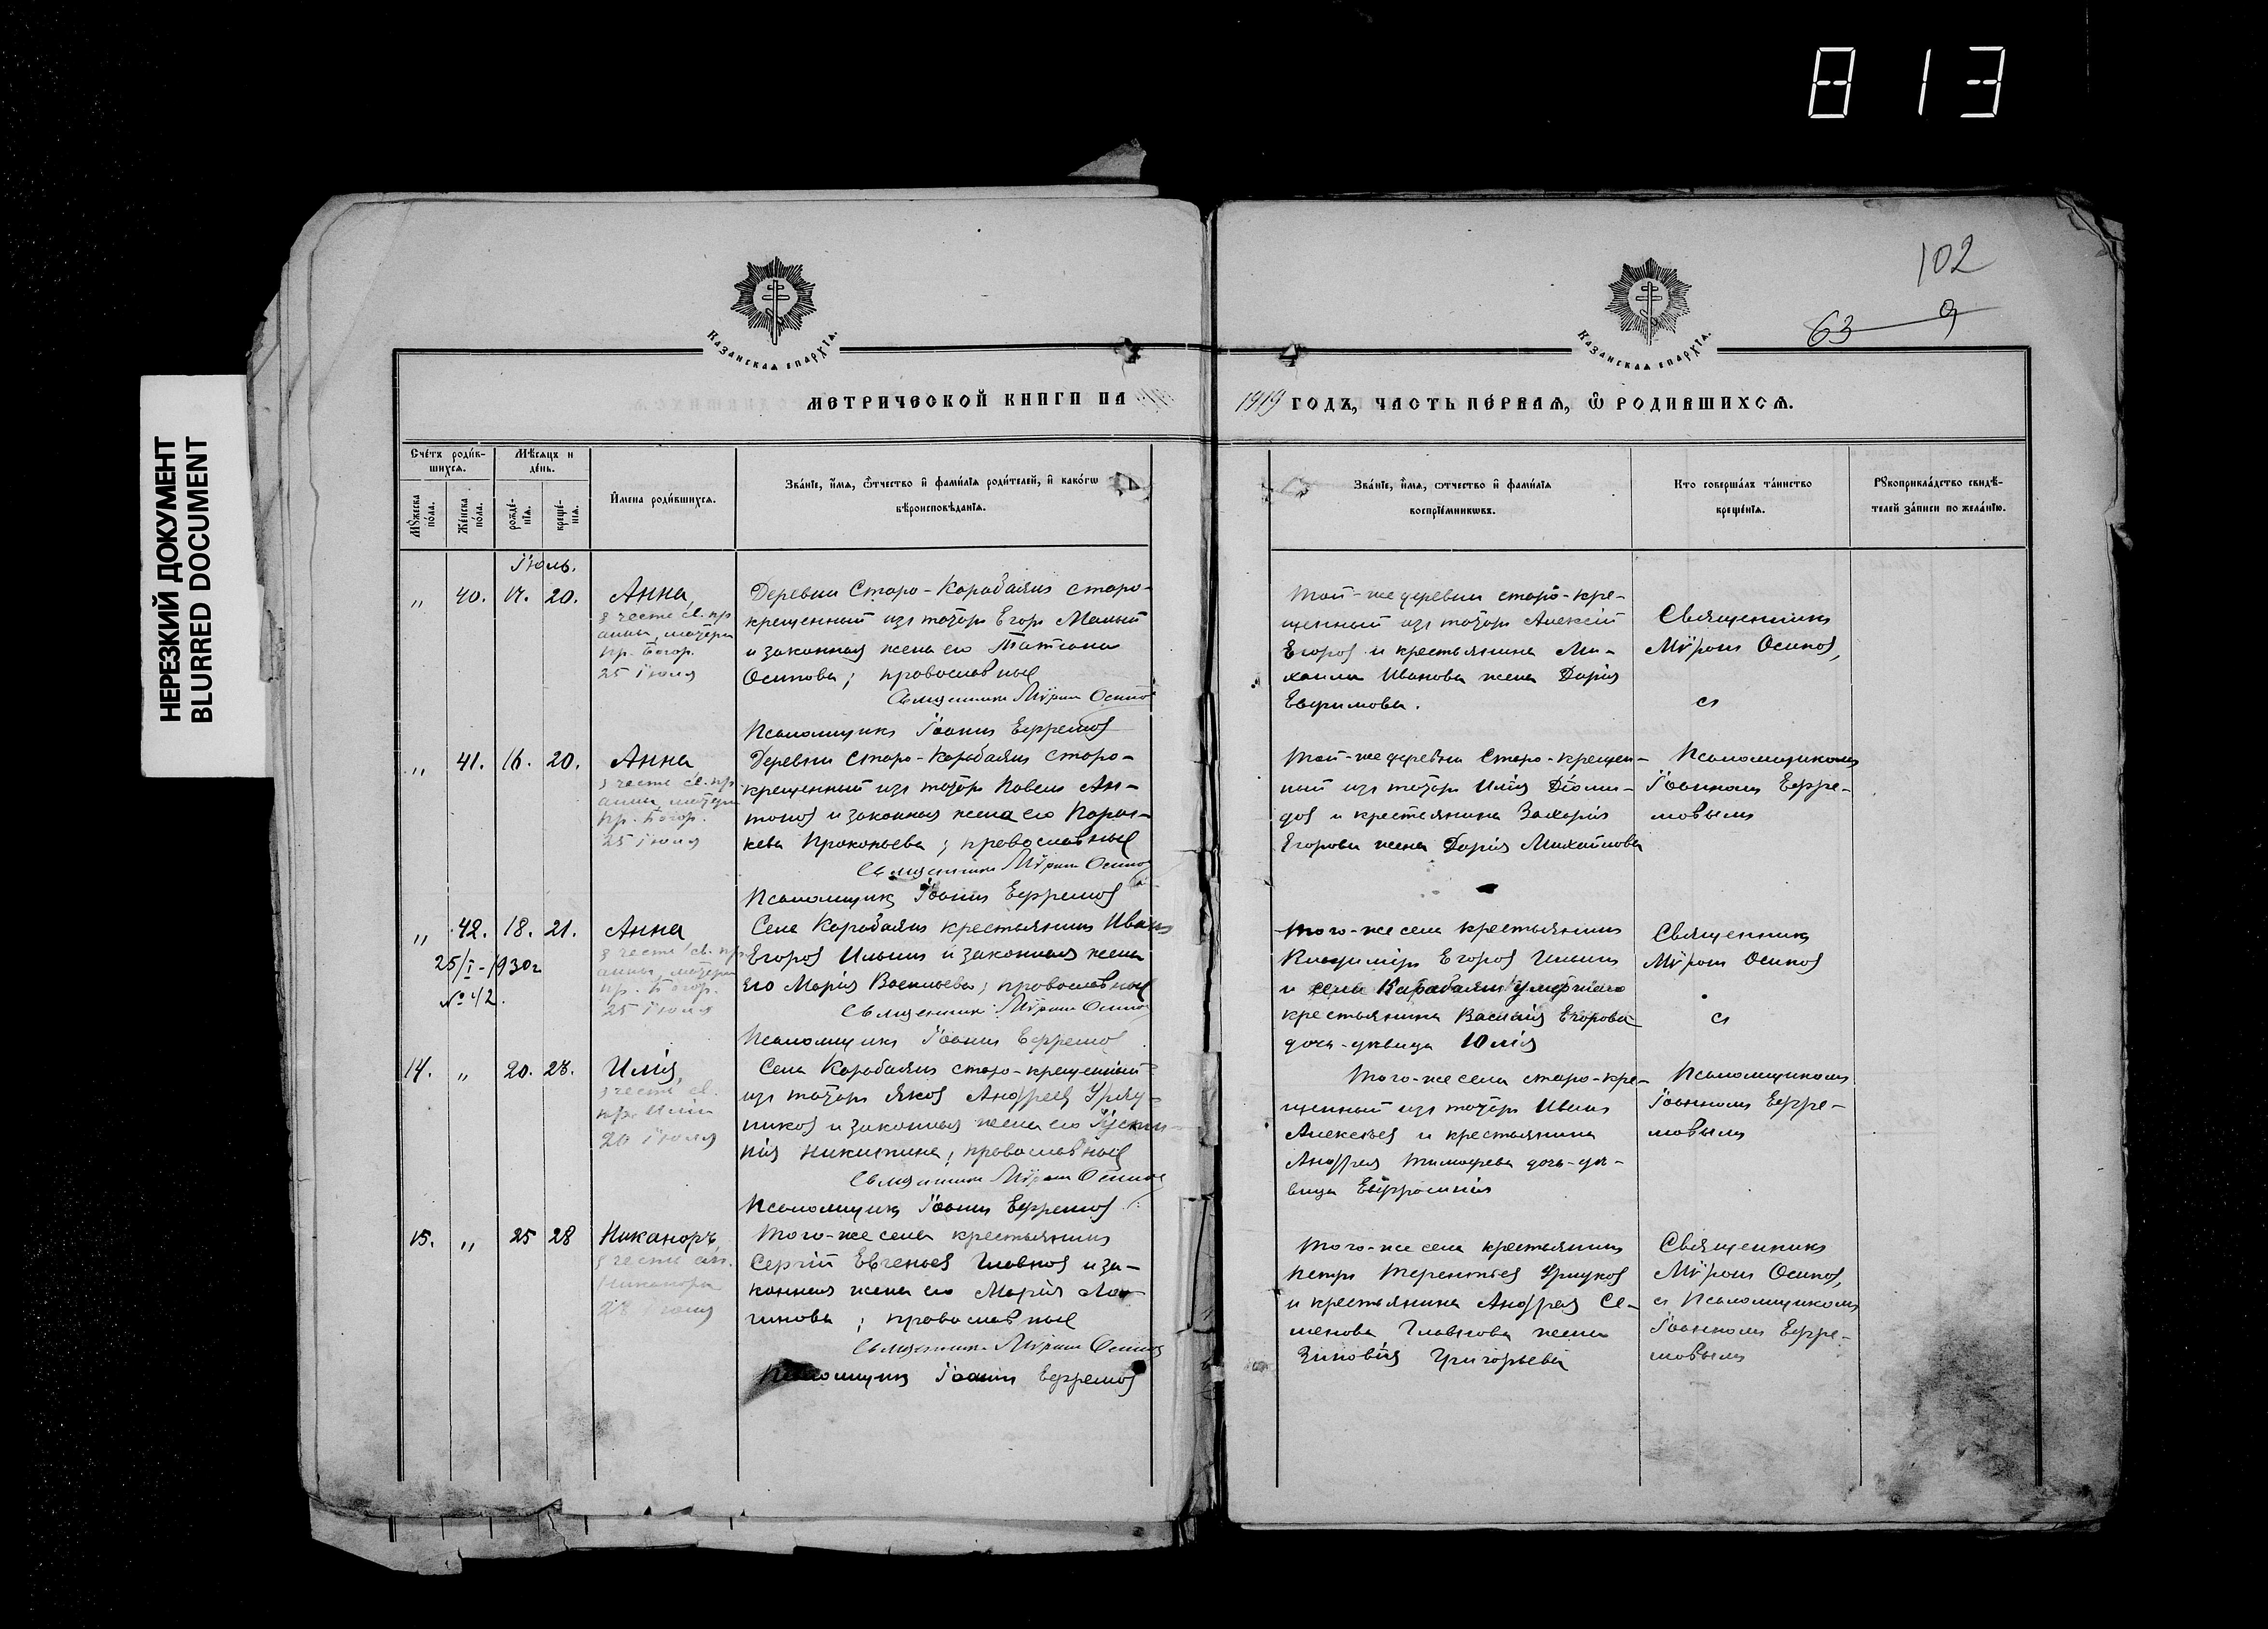 813
НЕРЕЗКИЙ ДОКУМЕНТ
BLURRED DOCUMENT
102
63 9
Казанская епархїѧ.
Казанская епархїѧ.
МЕТРИЧЕСКОЙ КНИГИ НА
1919 ГОДЪ, ЧАСТЬ ПЕ́РВАЯ, Ѽ РОДИВШИХСЯ.
Сче́тъ роди́в-
шихся.
Мѣ́сяцъ и
де́нь.
Мꙋ́жеска
по́ла.
Же́нска
по́ла.
рожде́-
нїя.
креще́-
нїя.
И҆мена роди́вшихся.
Зва́нїе, и҆́мя, ѻ҆́тчество и҆ фами́лїя роди́телей, и҆ како́гѡ
вѣ́роисповѣ́данїя.
Зва́нїе, и҆́мя, ѻтчество и҆ фами́лїя
воспрїе́мникѡвъ.
Кто̀ соверша́лъ та́инство
креще́нїя.
Рꙋкоприкла́дство свидѣ́-
телей за́писи по жела́нїю.
Іюль.
„ 40. 17. 20. Анна
въ честь св. пр
анны, матери
пр. Богор.
25 іюля
Деревни Старо-Карабаянъ старо-
крещенный изъ татаръ Егоръ Малый
и законная жена его Татіана
Осипова; православные
Священникъ Мѵронъ Осипов
Псаломщикъ Іоаннъ Ефремовъ
Той-же деревни старо-кре-
щенный изъ татаръ Алексій
Егоровъ и крестьянина Ми-
хаила Иванова жена Дарія
Евфимова.
Священникъ
Мѵронъ Осиповъ,
съ
„ 41. 16. 20. Анна
въ честь св. пр
анны, матери
пр. Богор.
25 іюля
Деревни Старо-Карабаянъ старо-
крещенный изъ татаръ Павелъ Ан-
тоновъ и законная жена его Парас-
кева Прокопьева; православные
Священникъ Мѵронъ Осипов
Псаломщикъ Іоаннъ Ефремовъ
Той-же деревни Старо-крещен-
ный изъ татаръ Илія Діоми-
довъ и крестьянина Захарія
Егорова жена Дарія Михайлова
Псаломщикомъ
Іоанномъ Ефре-
мовымъ
„ 42. 18. 21. Анна
25/I-1930г
№ 42.
въ честь св. пр.
анны, матери
пр. Богор.
25 іюля
Села Карабаянъ крестьянинъ Иванъ
Егоровъ Ильинъ и законная жена
его Марія Васильева; православные
Священникъ Мѵронъ Осипов
Псаломщикъ Іоаннъ Ефремов
Того-же села крестьянинъ
Владиміръ Егоровъ Ильинъ
и села Карабаянъ умершаго
крестьянина Василія Егорова
дочь-дѣвица Юлія
Священникъ
Мѵронъ Осиповъ
съ
14. „ 20. 28. Илія,
въ честь св.
пр. Иліи
20 іюля
Села Карабаянъ старо-крещенный
изъ татаръ Яковъ Андреевъ Уряд-
никовъ и законная жена его Іустин-
нія Никитина; православные
Священникъ Мѵронъ Осипов
Псаломщикъ Іоаннъ Ефремовъ
Того-же села старо-кре-
щенный изъ татаръ Иванъ
Алексѣевъ и крестьянина
Андрея Тимофеева дочь-дѣ-
вица Евфросинія
Псаломщикомъ
Іоанномъ Ефре-
мовымъ
15. „ 25 28 Никаноръ
въ честь ап.
Никанора
28 іюля
Того-же села крестьянинъ
Сергій Евгеньевъ Главновъ и за-
конная жена его Марія Лон-
гинова; православные
Священникъ Мѵронъ Осипов
Псаломщикъ Іоаннъ Ефремовъ
Того-же села крестьянинъ
Петръ Терентьевъ
и крестьянина Андрея Се-
менова Главнова жена
Зиновія Григорьева
Священникъ
Мѵронъ Осиповъ,
съ Псаломщикомъ
Іоанномъ Ефре-
мовымъ